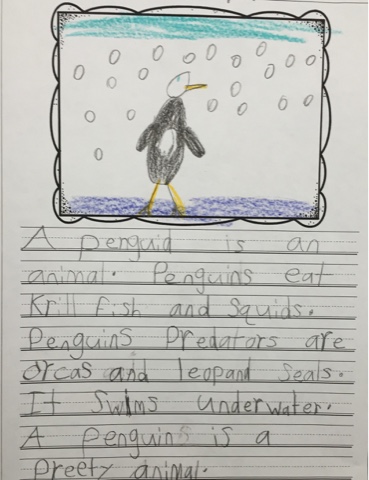 A penguid is an
animal. Penguins eat
Krill fish and Squids.
Penguins Predators are
orcas and leopand seals.
It Swims underwater.
A penguins is a
preety animal.